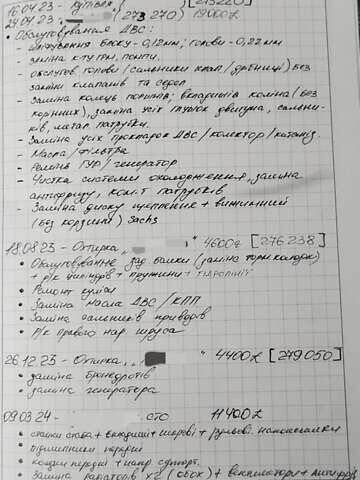 16.04.23 - Купівля, [273220]
29.04.23 (273 270) 19000₴
• Обслуговування ДВС:
- шліфування блоку - 0,12мм; голови - 0,22мм
заміна к-ту грм, помпи,
- обслугов. голови (сальники клап./дрібниці) без
заміни клапанів та седел
- Заміна колець поршнів; вкладишів коліна (без
корінних), заміна усіх втулок двигуна, сальни-
ків, метал патрубки.
- Заміна усіх прокладок ДВС/колектор/каталіз.
- Масла/фільтра
- Ремінь ГУР/генератор
- Чистка системи охолодження, заміна
антифризу, ком.т патрубків
- Заміна диску щеплення + вижимний
(без корзини) Sachs
18.08.23 - Отирка, " 4600₴ [276 238]
• Обслуговування зад балки (заміна торм колодок)
+ р/к циліндрів + пружини +
• Ремонт куліси
• Заміна масла ДВС/КПП
• Заміна сальників приводів
• Р/к правого нар шруса
26.12.23 - Отирка, " 4400₴ [279050]
• заміна бронедротів
• заміна генератора
09.03.24 - СТО 11400₴
• стійки става + вкладиші + шарові + рульові наконечники
• підшипники передні
• колодки передні + напр супорт.
• Заміна радіаторів x2 (обох) + вентилятори + антифриз